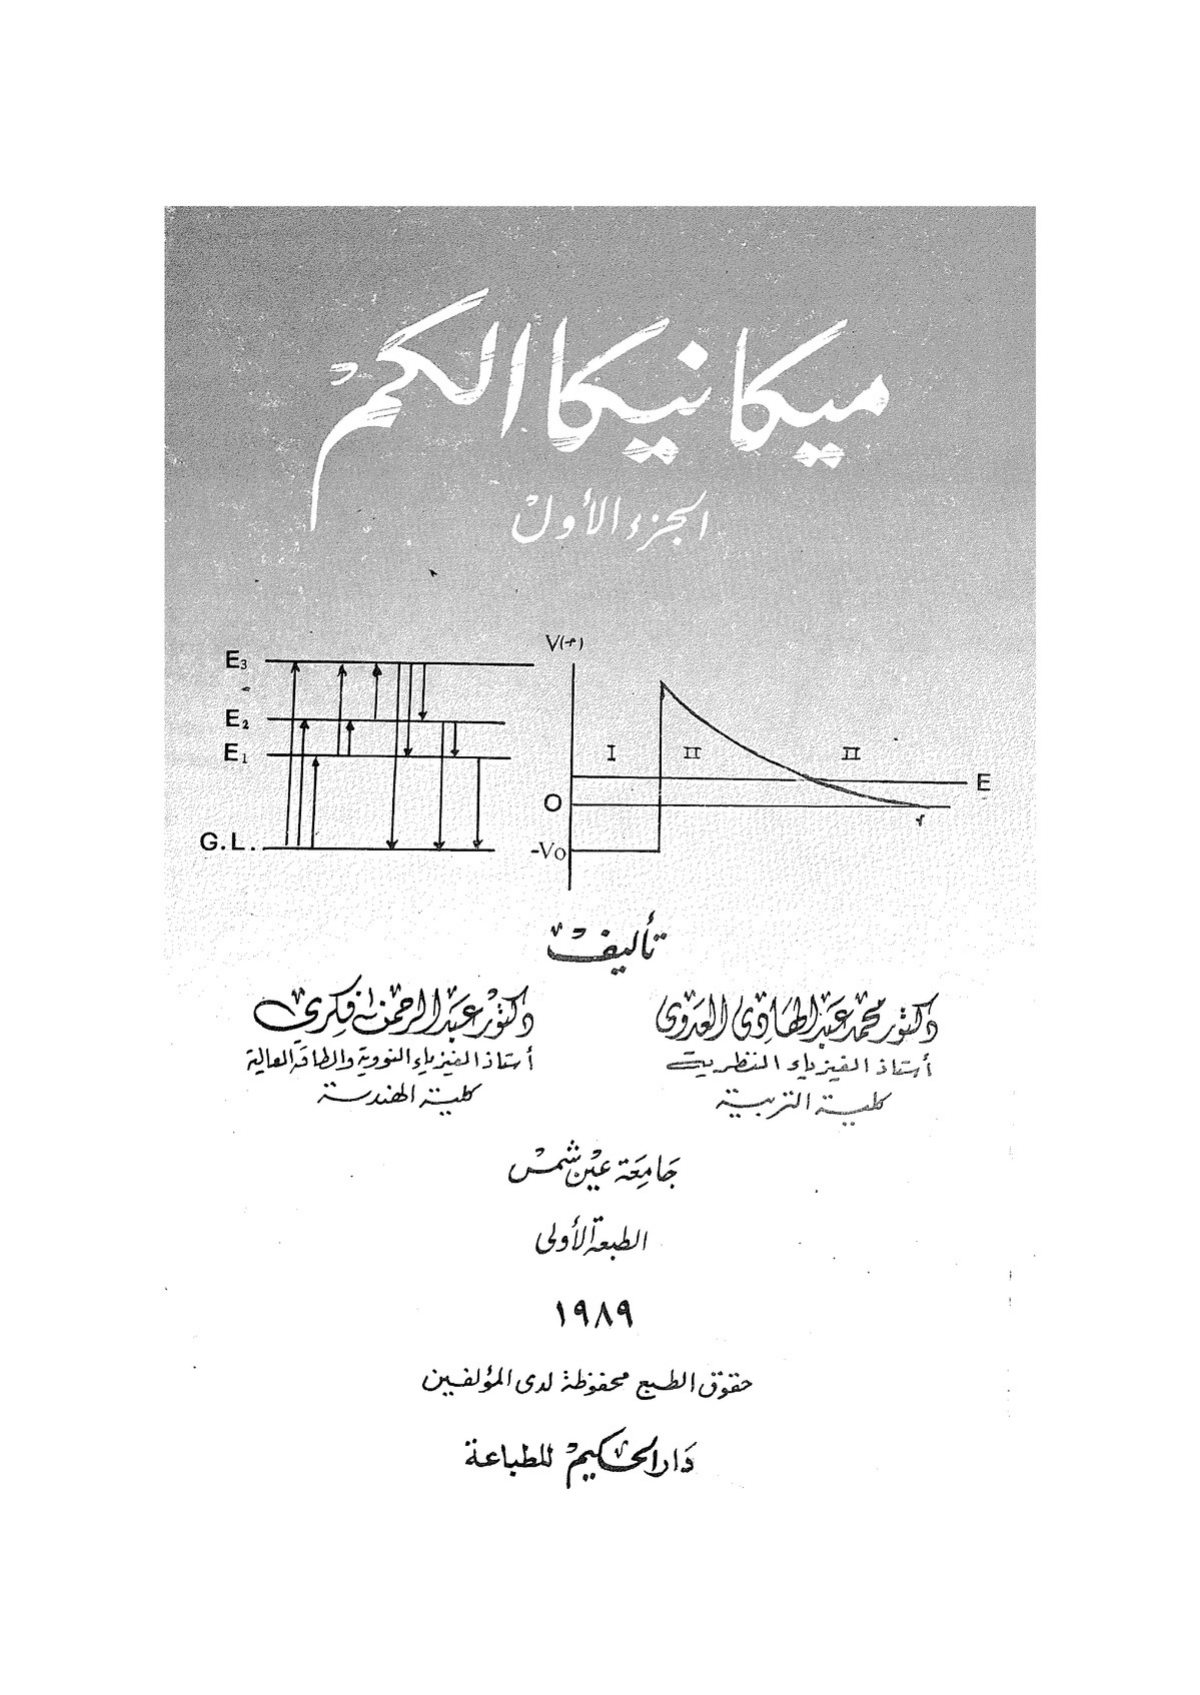 ميكانيكا الكم
الجزء الأول
E3
E2
E1
G.L.
V(r)
I
II
II
E
O
r
-Vo
تأليف
دكتور محمد عبد الهادى العدوى
أستاذ الفيزياء النظرية
كلية التربية
دكتور عبد الرحمن فكرى
أستاذ الفيزياء النووية والطاقة العالية
كلية الهندسة
جامعة عين شمس
الطبعة الأولى
١٩٨٩
حقوق الطبع محفوظة لدى المؤلفين
دار الحكيم للطباعة